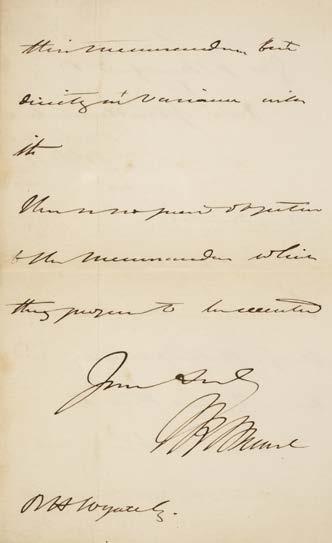 this memorandum but
directly at variance with
it
There is no objection
to the memorandum which
they propose to be executed
Yours Truly